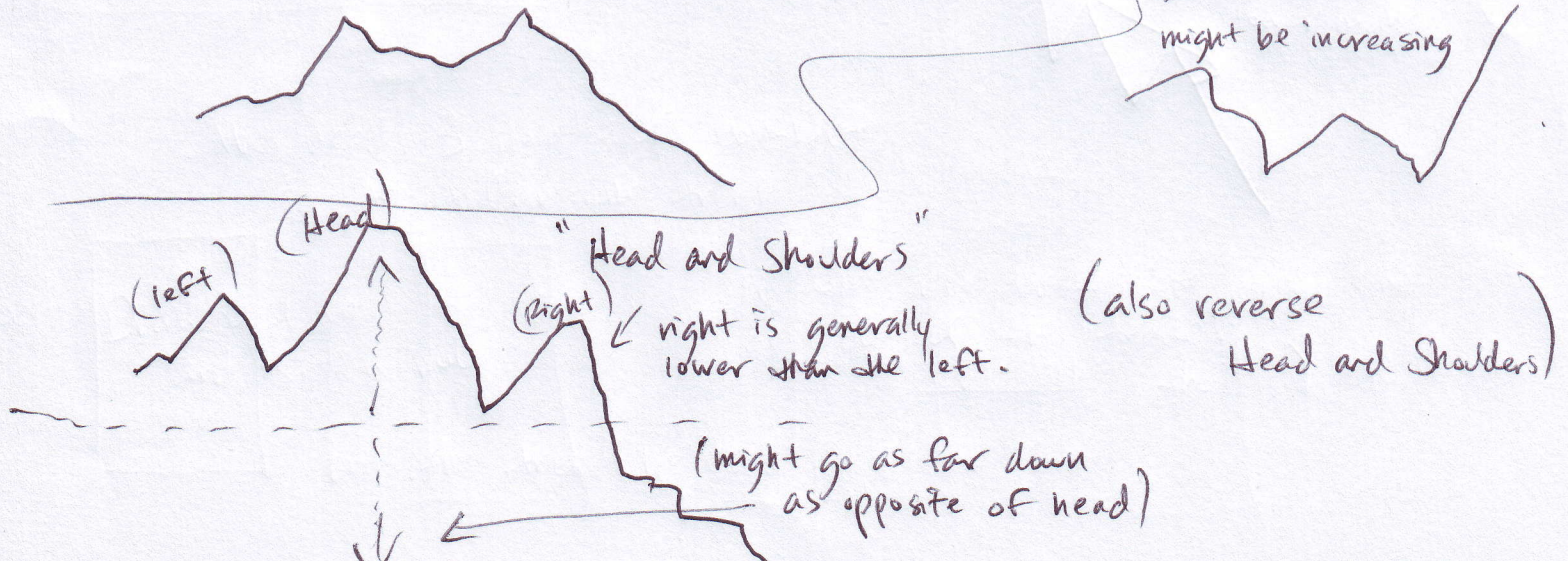 might be increasing
(Head)
"Head and Shoulders"
(left)
(Right)
right is generally
lower than the left.
(also reverse
Head and Shoulders)
(might go as far down
as opposite of head)